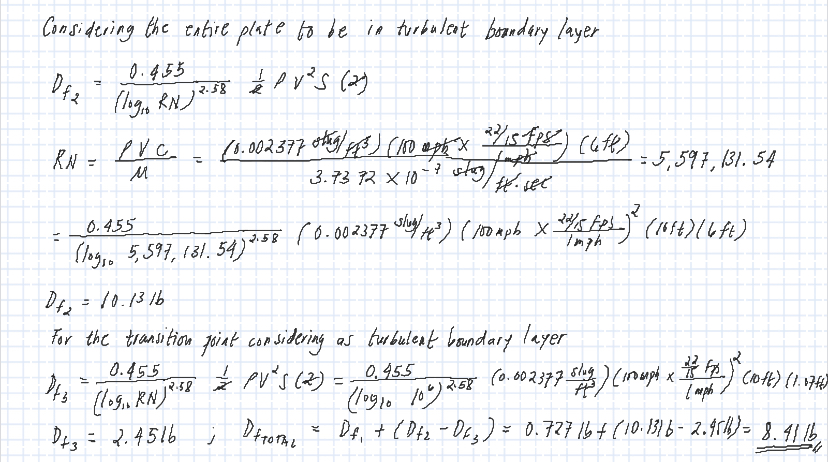 Considering the entire plate to be in turbulent boundary layer
Df₂ = 0.455 / (log₁₀ RN)^2.58 1/2 ρV²S (2)
RN = ρVC / μ = (0.002377 slug/ft³) (100 mph × 22/15 fps / 1 mph) (6 ft) / 3.7372 × 10⁻⁷ slug/ft·sec = 5,597,131.54
= 0.455 / (log₁₀ 5,597,131.54)^2.58 (0.002377 slug/ft³) (100 mph × 22/15 fps / 1 mph)² (10 ft)(6 ft)
Df₂ = 10.13 lb
For the transition point considering as turbulent boundary layer
Df₃ = 0.455 / (log₁₀ RN)^2.58 1/2 ρV²S (2) = 0.455 / (log₁₀ 10⁶)^2.58 (0.002377 slug/ft³) (100 mph × 22/15 fps / 1 mph)² (10 ft) (1.07 ft)
Df₃ = 2.45 lb ; DfTOTAL = Df₁ + (Df₂ - Df₃) = 0.727 lb + (10.13 lb - 2.45 lb) = 8.41 lb